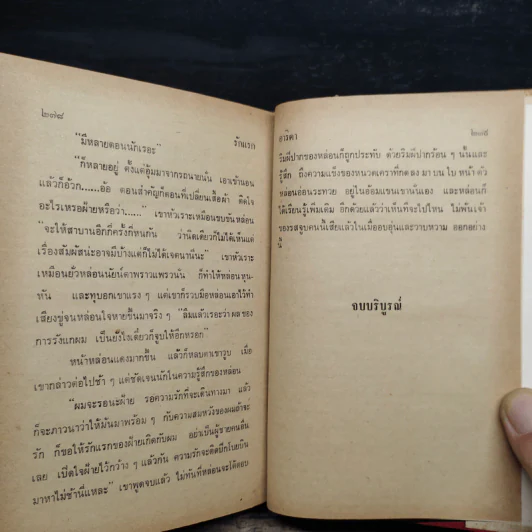 ๒๗๘
รักแรก
"มีหลายตอนนักเรอะ"
"ก็หลายอยู่ ตั้งแต่อุ้มมาจากรถนายนั่น เอาเข้านอน
แล้วก็อ้วก......อ้อ ตอนสำคัญก็ตอนที่เปลี่ยนเสื้อผ้า ติดใจ
อะไรเหรอฝ้ายหรือว่า......" เขาหัวเราะเหมือนขบขันหล่อน
"จะให้สาบานอีกกี่ครั้งก็ทนกัน ว่านิดเดียวก็ไม่ได้เห็นแต่
เรื่องสัมผัสน่ะอาจมีบ้างแต่ก็ไม่ได้เจตนานี่นะ" เขาหัวเราะ
เหมือนยั่วหล่อนนัยน์ตาพราวแพรวนั่น ก็ทำให้หล่อนหุน-
หัน และทุบอกเขาแรง ๆ แต่เขาก็รวบมือหล่อนเอาไว้ทำ
เสียงขู่จนหล่อนใจหายขึ้นมาจริง ๆ "ลืมแล้วเรอะว่า ผลของ
การรังแกผม เป็นยังไงเดี๋ยวก็จูบให้อีกหรอก"
หน้าหล่อนแดงมากขึ้น แล้วก็หลบตาเขาวูบ เมื่อ
เขากล่าวต่อไปช้า ๆ แต่ชัดเจนนักในความรู้สึกของหล่อน
"ผมจะรอนะฝ้าย รอความรักที่จะเดินทางมา แล้ว
ก็จะภาวนาว่าให้มันมาพร้อม ๆ กับความสมหวังของผมถ้าจะ
รัก ก็ขอให้รักแรกของฝ้ายเกิดกับผม อย่าเป็นผู้ชายคนอื่น
เลย เปิดใจฝ้ายไว้กว้าง ๆ แล้วกัน ความรักจะติดปีกโบยบิน
มาหาไม่ช้านี่แหละ" เขาพูดจบแล้ว ไม่ทันที่หล่อนจะโต้ตอบ
อาริตา
๒๗๙
ริมฝีปากของหล่อนก็ถูกประทับ ด้วยริมฝีปากร้อน ๆ นั้นและ
รู้สึก ถึงความแข็งของหนวดเคราที่กดลงมาบนใบหน้าตัว
หล่อนอ่อนระทวย อยู่ในอ้อมแขนเขานั่นเอง และหล่อนก็
ได้เรียนรู้เพิ่มเติม อีกด้วยแล้วว่าเห็นที่จะไปไหน ไม่พ้นเจ้า
ของรสจูบคนนี้เสียแล้วในเมื่ออบอุ่นและวาบหวาม ออกอย่าง
นี้
จบบริบูรณ์